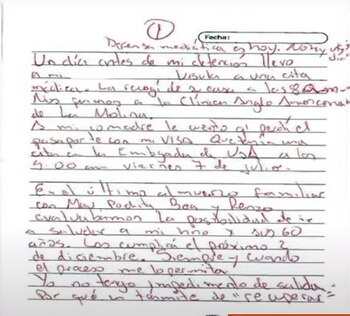 ①
Fecha:
Defensa mediática es hoy.
Un día antes de mi detención llevo
a mi Ursula a una cita
médica. La recogí de su casa a las 8 am
Nos fuimos a la Clínica Anglo Americana
de La Molina.
A mi comadre le cuento q' perdí el
pasaporte con mi VISA. Que tenía una
cita en la Embajada de USA a las
9.00 am viernes 7 de julio.
En el último almuerzo familiar
con May Bea y Renzo
evaluábamos la posibilidad de ir
a saludar a mi niño x sus 60
años. Los cumplirá el próximo 2
de diciembre. Siempre y cuando
el proceso me lo permita.
Yo no tengo impedimento de salida.
Por qué un trámite de "recuperar"